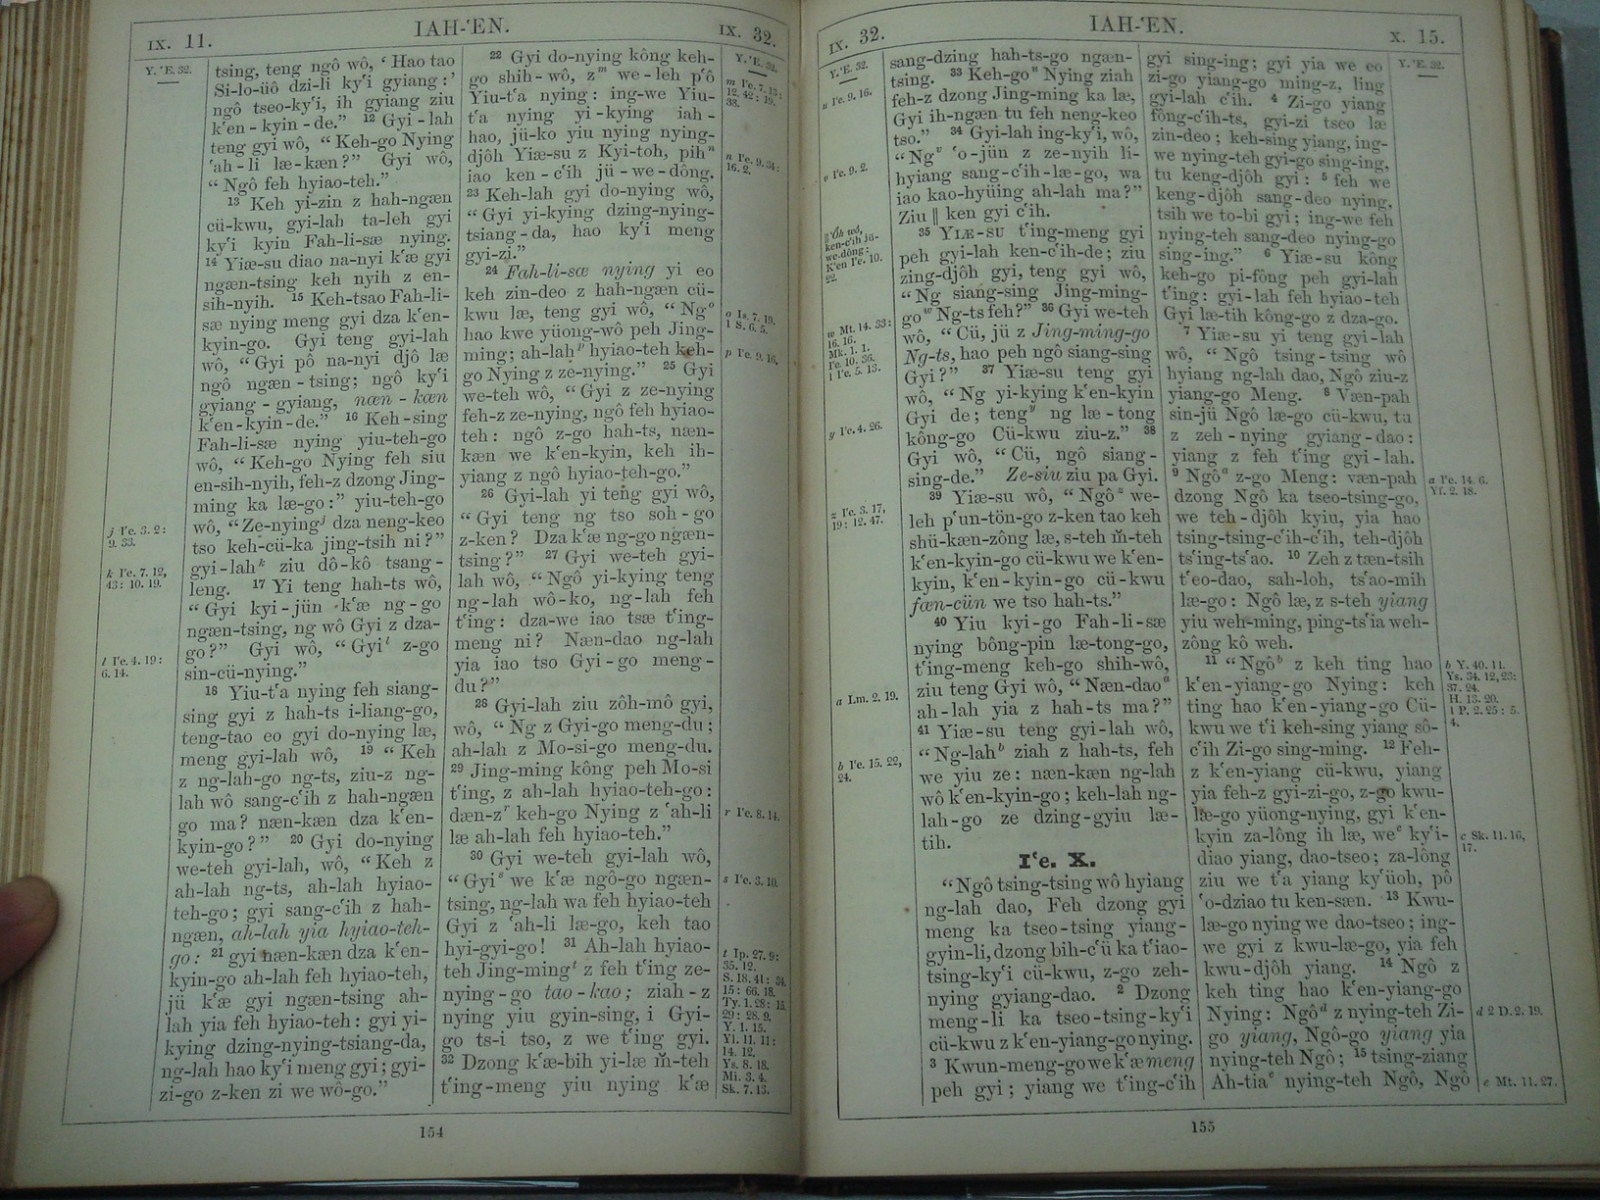 IX. 11.
IAH-'EN.
IX. 32.
Y. 'E. 32.
tsing, teng ngô wô, ‘ Hao tao
Si-lo-üô dzi-li ky‘i gyiang:’
ngô tseo-ky‘i, ih gyiang ziu
k‘en-kyin-de.” 12 Gyi-lah
teng gyi wô, “ Keh-go Nying
‘ah-li læ-kæn?” Gyi wô,
“ Ngô feh hyiao-teh.”
13 Keh yi-zin z hah-ngæn
cü-kwu, gyi-lah ta-leh gyi
ky‘i kyin Fah-li-sæ nying.
14 Yiæ-su diao na-nyi k‘æ gyi
ngæn-tsing keh nyih z en-
sih-nyih. 15 Keh-tsao Fah-li-
sæ nying meng gyi dza k‘en-
kyin-go. Gyi teng gyi-lah
wô, “ Gyi pô na-nyi djô læ
ngô ngæn-tsing; ngô ky‘i
gyiang-gyiang, næn-kæn
k‘en-kyin-de.” 16 Keh-sing
Fah-li-sæ nying yiu-teh-go
wô, “ Keh-go Nying feh siu
en-sih-nyih, feh-z dzong Jing-
ming ka læ-go:” yiu-teh-go
wô, “ Ze-nying j dza neng-keo
tso keh-cü-ka jing-tsih ni?”
gyi-lah k ziu dô-kô tsang-
leng. 17 Yi teng hah-ts wô,
“ Gyi kyi-jün k‘æ ng-go
ngæn-tsing, ng wô Gyi z dza-
go?” Gyi wô, “ Gyi l z-go
sin-cü-nying.”
18 Yiu-t‘a nying feh siang-
sing gyi z hah-ts i-liang-go,
teng-tao eo gyi do-nying læ,
meng gyi-lah wô, 19 “ Keh
z ng-lah-go ng-ts, ziu-z ng-
lah wô sang-c‘ih z hah-ngæn
go ma? næn-kæn dza k‘en-
kyin-go?” 20 Gyi do-nying
we-teh gyi-lah, wô, “ Keh z
ah-lah ng-ts, ah-lah hyiao-
teh-go; gyi sang-c‘ih z hah-
ngæn, ah-lah yia hyiao-teh-
go: 21 gyi næn-kæn dza k‘en-
kyin-go ah-lah feh hyiao-teh,
jü k‘æ gyi ngæn-tsing ah-
lah yia feh hyiao-teh: gyi yi-
kying dzing-nying-tsiang-da,
ng-lah hao ky‘i meng gyi; gyi-
zi-go z-ken zi we wô-go.”
j I‘e. 3. 2:
9. 33.
k I‘e. 7. 12,
43: 10. 19.
l I‘e. 4. 19:
6. 14.
22 Gyi do-nying kông keh-
go shih-wô, z m we-leh p‘ô
Yiu-t‘a nying: ing-we Yiu-
t‘a nying yi-kying iah-
hao, jü-ko yiu nying nying-
djôh Yiæ-su z Kyi-toh, pih n
iao ken-c‘ih jü-we-dông.
23 Keh-lah gyi do-nying wô,
“ Gyi yi-kying dzing-nying-
tsiang-da, hao ky‘i meng
gyi-zi.”
24 Fah-li-sæ nying yi eo
keh zin-deo z hah-ngæn cü-
kwu læ, teng gyi wô, “ Ng o
hao kwe yüong-wô peh Jing-
ming; ah-lah p hyiao-teh keh-
go Nying z ze-nying.” 25 Gyi
we-teh wô, “ Gyi z ze-nying
feh-z ze-nying, ngô feh hyiao-
teh: ngô z-go hah-ts, næn-
kæn we k‘en-kyin, keh ih-
yiang z ngô hyiao-teh-go.”
26 Gyi-lah yi teng gyi wô,
“ Gyi teng ng tso soh-go
z-ken? Dza k‘æ ng-go ngæn-
tsing?” 27 Gyi we-teh gyi-
lah wô, “ Ngô yi-kying teng
ng-lah wô-ko, ng-lah feh
t‘ing: dza-we iao tsæ t‘ing-
meng ni? Næn-dao ng-lah
yia iao tso Gyi-go meng-
du?”
28 Gyi-lah ziu zôh-mô gyi,
wô, “ Ng z Gyi-go meng-du;
ah-lah z Mo-si-go meng-du.
29 Jing-ming kông peh Mo-si
t‘ing, z ah-lah hyiao-teh-go:
dæn-z r keh-go Nying z ‘ah-li
læ ah-lah feh hyiao-teh.”
30 Gyi we-teh gyi-lah wô,
“ Gyi s we k‘æ ngô-go ngæn-
tsing, ng-lah wa feh hyiao-teh
Gyi z ‘ah-li læ-go, keh tao
hyi-gyi-go! 31 Ah-lah hyiao-
teh Jing-ming t z feh t‘ing ze-
nying-go tao-kao; ziah-z
nying yiu gyin-sing, i Gyi-
go ts-i tso, z we t‘ing gyi.
32 Dzong k‘æ-bih yi-læ m̄-teh
t‘ing-meng yiu nying k‘æ
m I‘e. 7. 13:
12. 42: 19.
38.
n I‘e. 9. 34:
16. 2.
o Is. 7. 19.
1 S. 6. 5.
p I‘e. 9. 16.
r I‘e. 8. 14.
s I‘e. 3. 10.
t Ip. 27. 9:
35. 12.
S. 18. 41: 34.
15: 66. 18.
Ty. 1. 28: 15.
29: 28. 9.
Y. 1. 15.
Yl. 11. 11:
14. 12.
Ys. 8. 18.
Mi. 3. 4.
Sk. 7. 13.
154
IX. 32.
IAH-'EN.
X. 15.
Y. 'E. 32.
u I‘e. 9. 16.
v I‘e. 9. 2.
w Mt. 14. 33:
16. 16.
Mk. 1. 1.
I‘e. 10. 36.
1 I‘e. 5. 13.
y I‘e. 4. 26.
z I‘e. 3. 17,
19: 12. 47.
a Lm. 2. 19.
b I‘e. 15. 22,
24.
sang-dzing hah-ts-go ngæn-
tsing. 33 Keh-go u Nying ziah
feh-z dzong Jing-ming ka læ,
Gyi ih-ngæn tu feh neng-keo
tso.” 34 Gyi-lah ing-ky‘i, wô,
“ Ng v ‘o-jün z ze-nyih li-
hyiang sang-c‘ih-læ-go, wa
iao kao-hyüing ah-lah ma?”
Ziu || ken gyi c‘ih.
35 YIÆ-SU t‘ing-meng gyi
peh gyi-lah ken-c‘ih-de; ziu
zing-djôh gyi, teng gyi wô,
“ Ng siang-sing Jing-ming-
go w Ng-ts feh?” 36 Gyi we-teh
wô, “ Cü, jü z Jing-ming-go
Ng-ts, hao peh ngô siang-sing
Gyi?” 37 Yiæ-su teng gyi
wô, “ Ng yi-kying k‘en-kyin
Gyi de; teng y ng læ-tong
kông-go Cü-kwu ziu-z.” 38
Gyi wô, “ Cü, ngô siang-
sing-de.” Ze-siu ziu pa Gyi.
39 Yiæ-su wô, “ Ngô z we-
leh p‘un-tön-go z-ken tao keh
shü-kæn-zông læ, s-teh m̄-teh
k‘en-kyin-go cü-kwu we k‘en-
kyin, k‘en-kyin-go cü-kwu
fæn-cün we tso hah-ts.”
40 Yiu kyi-go Fah-li-sæ
nying bông-pin læ-tong-go,
t‘ing-meng keh-go shih-wô,
ziu teng Gyi wô, “ Næn-dao a
ah-lah yia z hah-ts ma?”
41 Yiæ-su teng gyi-lah wô,
“ Ng-lah b ziah z hah-ts, feh
we yiu ze: næn-kæn ng-lah
wô k‘en-kyin-go; keh-lah ng-
lah-go ze dzing-gyiu læ-
tih.
I‘e. X.
“ Ngô tsing-tsing wô hyiang
ng-lah dao, Feh dzong gyi
meng ka tseo-tsing yiang-
gyin-li, dzong bih-c‘ü ka t‘iao-
tsing-ky‘i cü-kwu, z-go zeh-
nying gyiang-dao. 2 Dzong
meng-li ka tseo-tsing-ky‘i
cü-kwu z k‘en-yiang-go nying.
3 Kwun-meng-go we k‘æ meng
peh gyi; yiang we t‘ing-c‘ih
gyi sing-ing; gyi yia we eo
zi-go yiang-go ming-z, ling
gyi-lah c‘ih. 4 Zi-go yiang
fông-c‘ih-ts, gyi-zi tseo læ
zin-deo; keh-sing yiang, ing-
we nying-teh gyi-go sing-ing,
tu keng-djôh gyi: 5 feh we
keng-djôh sang-deo nying,
tsih we to-bi gyi; ing-we feh
nying-teh sang-deo nying-go
sing-ing.” 6 Yiæ-su kông
keh-go pi-fông peh gyi-lah
t‘ing: gyi-lah feh hyiao-teh
Gyi læ-tih kông-go z dza-go.
7 Yiæ-su yi teng gyi-lah
wô, “ Ngô tsing-tsing wô
hyiang ng-lah dao, Ngô ziu-z
yiang-go Meng. 8 Væn-pah
sin-jü Ngô læ-go cü-kwu, tu
z zeh-nying gyiang-dao:
yiang z feh t‘ing gyi-lah.
9 Ngô a z-go Meng: væn-pah
dzong Ngô ka tseo-tsing-go,
we teh-djôh kyiu, yia hao
tsing-tsing-c‘ih-c‘ih, teh-djôh
ts‘ing-ts‘ao. 10 Zeh z tæn-tsih
t‘eo-dao, sah-loh, ts‘ao-mih
læ-go: Ngô læ, z s-teh yiang
yiu weh-ming, ping-ts‘ia weh-
zông kô weh.
11 “ Ngô b z keh ting hao
k‘en-yiang-go Nying: keh
ting hao k‘en-yiang-go Cü-
kwu we t‘i keh-sing yiang sô-
c‘ih Zi-go sing-ming. 12 Feh-
z k‘en-yiang cü-kwu, yiang
yia feh-z gyi-zi-go, z-go kwu-
læ-go yüong-nying, gyi k‘en-
kyin za-lông ih læ, we c ky‘i-
diao yiang, dao-tseo; za-lông
ziu we t‘a yiang ky‘üoh, pô
‘o-dziao tu ken-sæn. 13 Kwu-
læ-go nying we dao-tseo; ing-
we gyi z kwu-læ-go, yia feh
kwu-djôh yiang. 14 Ngô z
keh ting hao k‘en-yiang-go
Nying: Ngô d z nying-teh Zi-
go yiang, Ngô-go yiang yia
nying-teh Ngô; 15 tsing-ziang
Ah-tia e nying-teh Ngô, Ngô
a I‘e. 14. 6.
Yf. 2. 18.
b Y. 40. 11.
Ys. 34. 12, 23:
37. 24.
H. 13. 20.
1 P. 2. 25: 5.
4.
c Sk. 11. 16,
17.
d 2 D. 2. 19.
e Mt. 11. 27.
155